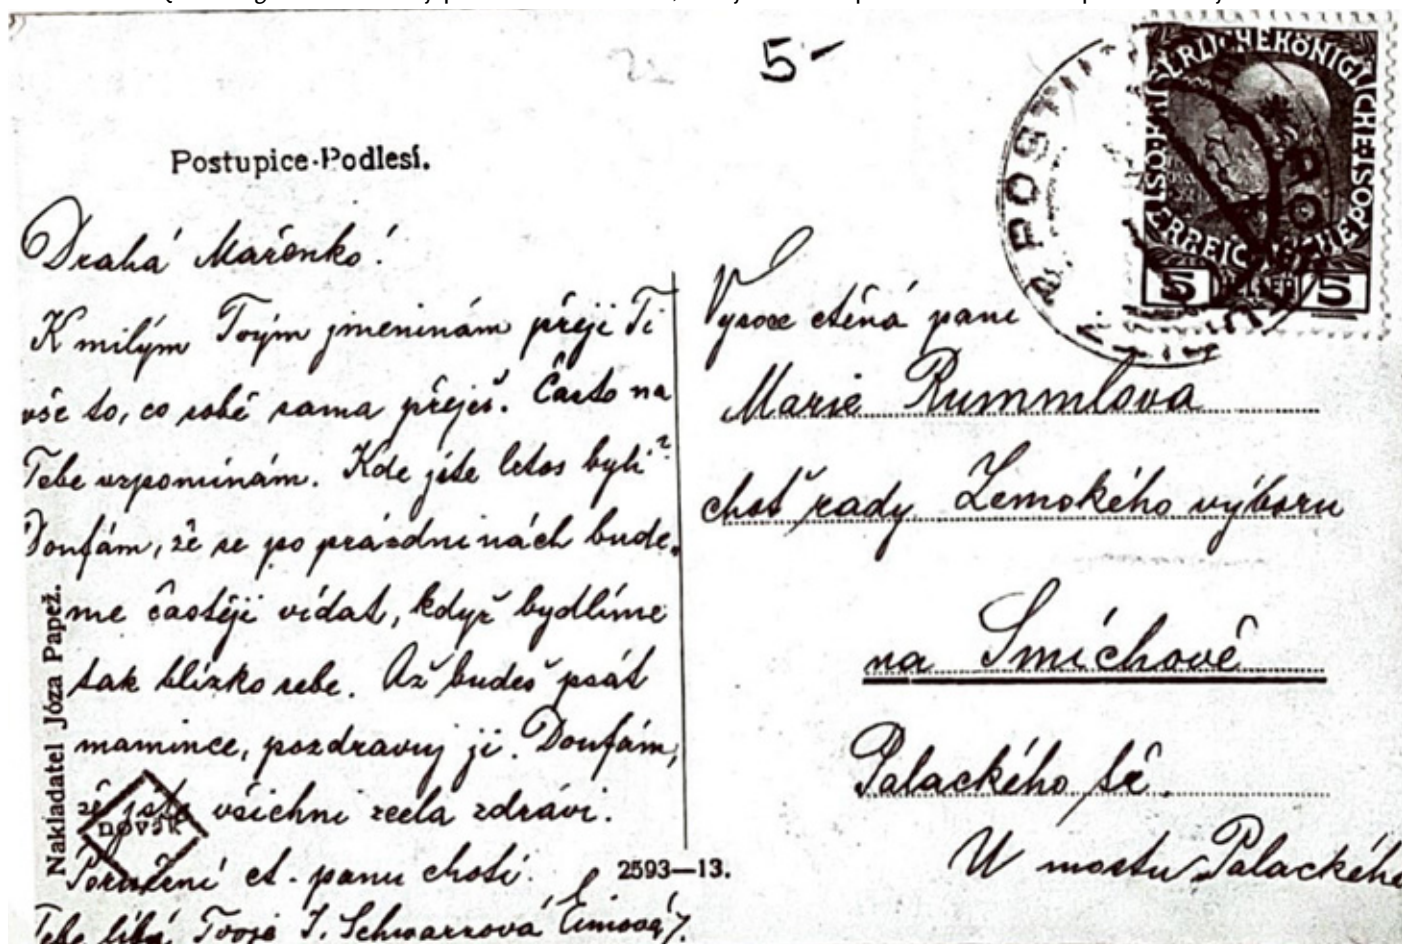 5-
Postupice-Podlesí.
Drahá Mařenko!
K milým Tvým jmeninám přeji Ti
vše to, co sobě sama přeješ. Často na
Tebe vzpomínám. Kde jste letos byli?
Doufám, že se po prázdninách bude-
me častěji vídat, když bydlíme
tak blízko sebe. Až budeš psát
mamince, pozdravuj ji. Doufám,
že jste všichni zcela zdrávi.
Poručení ct. panu choti.
Tebe líbá Tvoje J. Schwarzová
Nakladatel Józa Papež.
novák
2593—13.
Vysoce ctěná paní
Marie Rummlova
choť rady Zemského výboru
na Smíchově
Palackého tř.
U mostu Palackého
5 HELLER 5